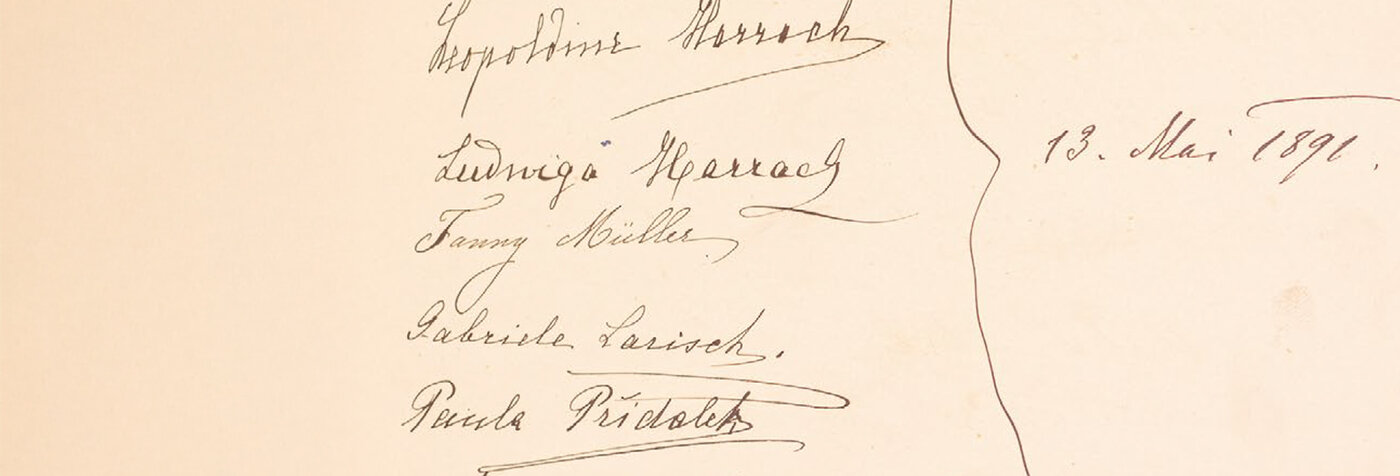 Leopoldine Harrach
Ludwiga Harrach
Fanny Müller
Gabriele Larisch.
Paula Přidalek
13. Mai 1891.